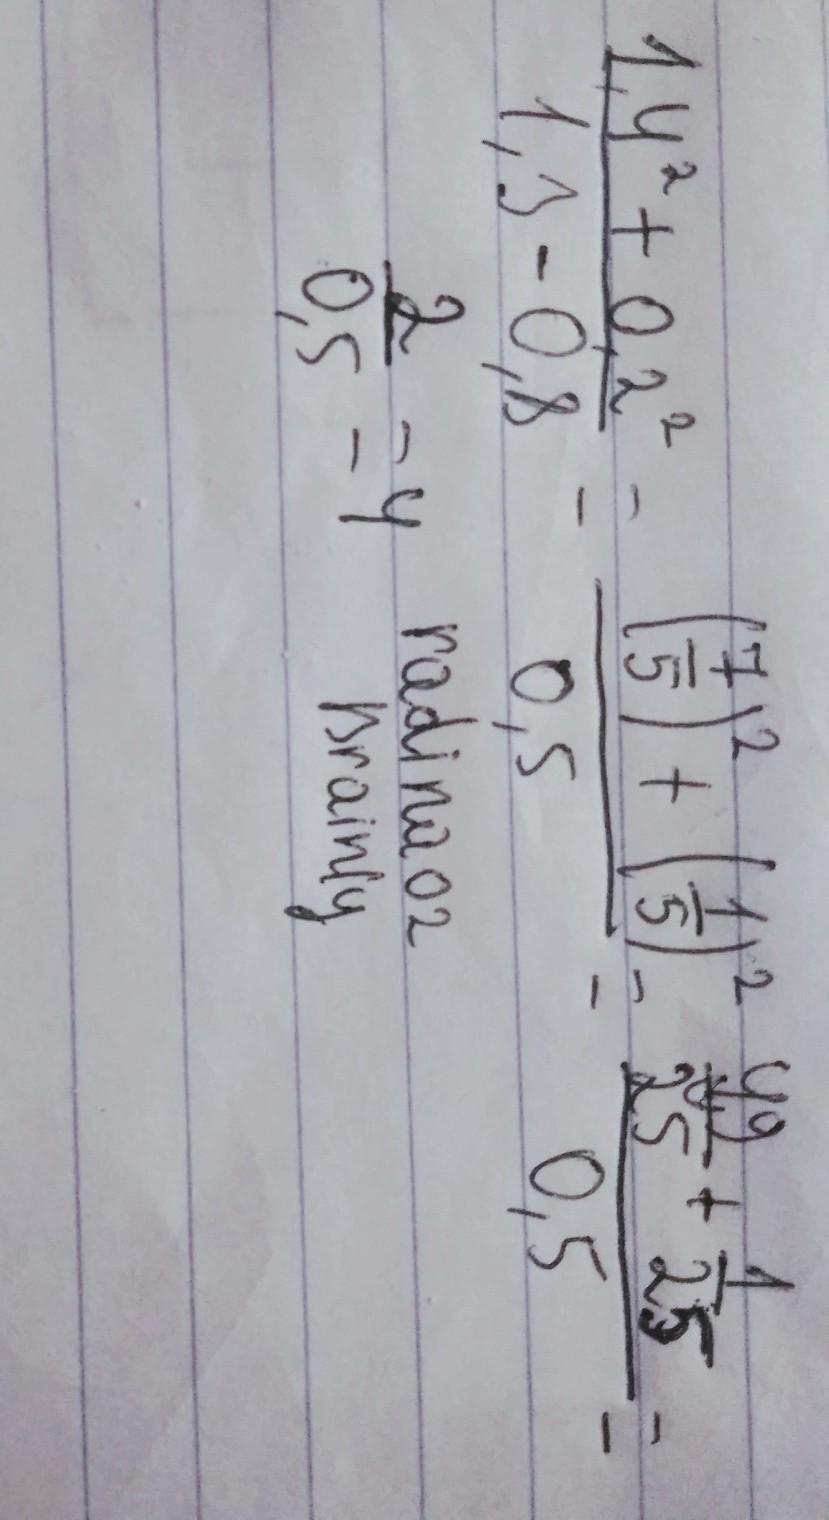 (1,4² + 0,2²)/(1,3 - 0,8) = ((7/5)² + (1/5)²)/0,5 = (49/25 + 1/25)/0,5 =
2/0,5 = 4 radina02
Brainly